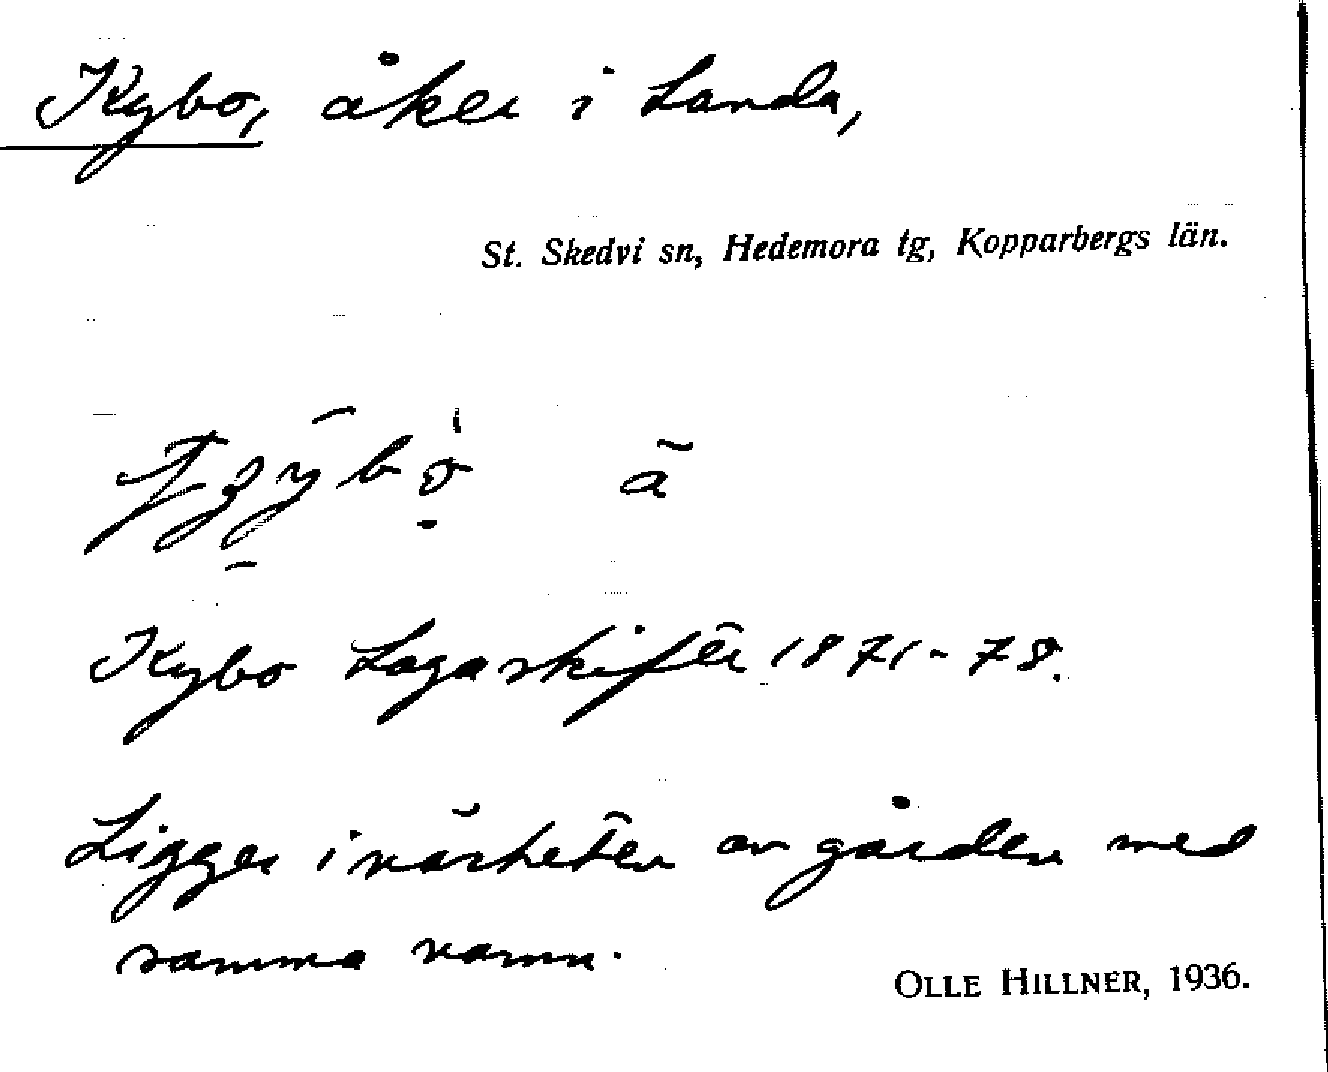 Kybo, åker i Landa,
St. Skedvi sn, Hedemora tg, Kopparbergs län.
ā
Kybo Lagaskifte 1871-78.
Ligger i närheten av gården med
samma namn.
OLLE HILLNER, 1936.